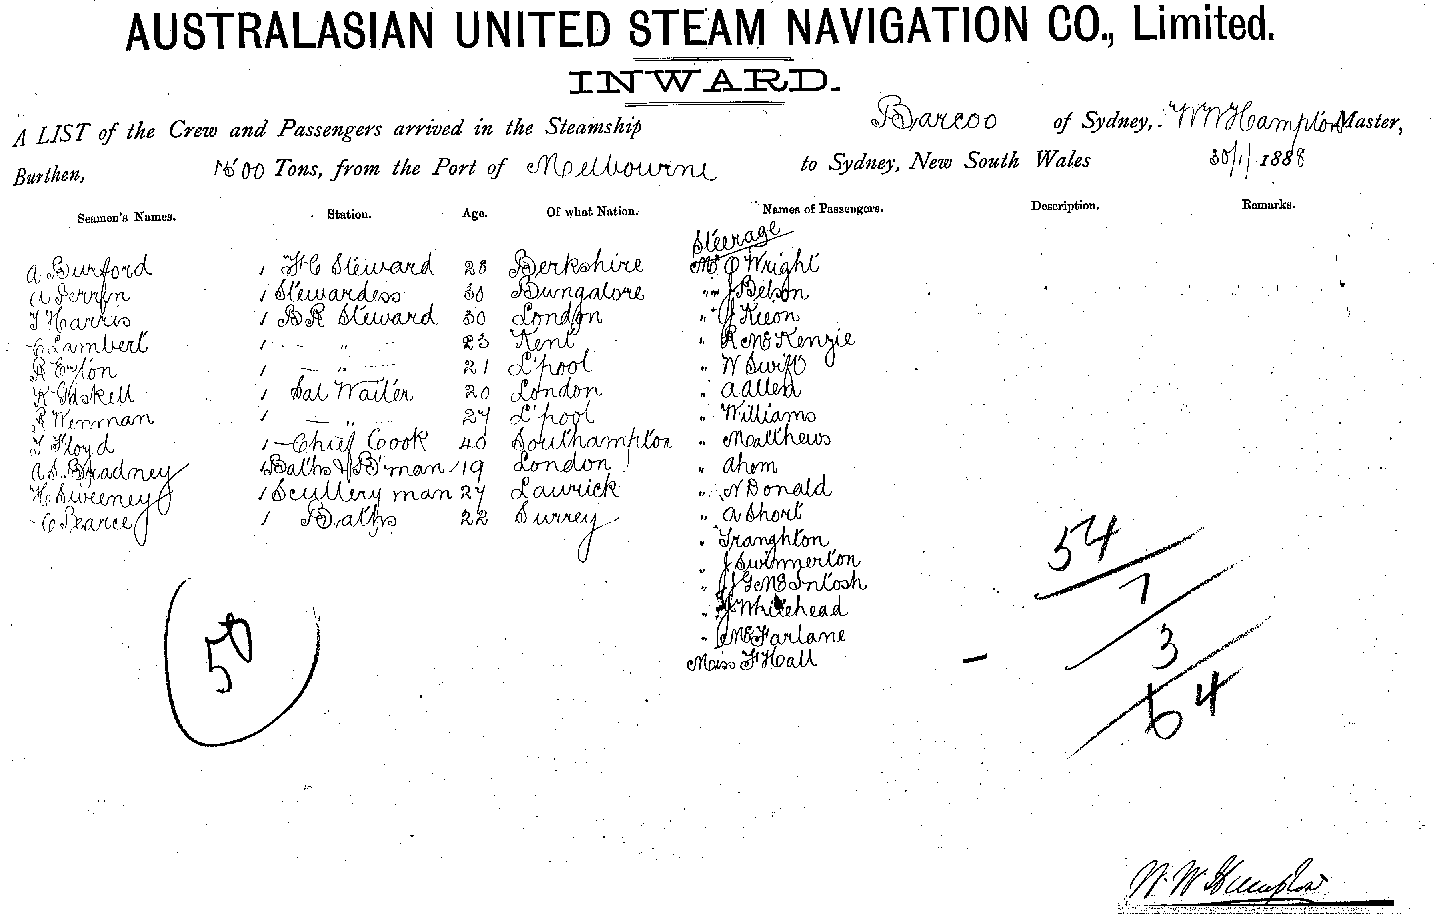 AUSTRALASIAN UNITED STEAM NAVIGATION CO., Limited.
INWARD.
A LIST of the Crew and Passengers arrived in the Steamship Barcoo of Sydney, W W Hampton Master,
Burthen, 1500 Tons, from the Port of Melbourne to Sydney, New South Wales 30/1/ 1888
Seamen's Names. Station. Age. Of what Nation. Names of Passengers. Description. Remarks.
Steerage
A Burford 1 F C Steward 28 Berkshire Mr O Wright
A Perrin 1 Stewardess 30 Bungalore " J Belson
T Harris 1 B R Steward 30 London " J Keon
C Lambert 1 " 23 Kent " R McKenzie
R Eyton 1 " 21 L'pool " W Swift
K Gaskell 1 Sal Waiter 20 London " A Allen
R Wenman 1 " 27 L'pool " Williams
T Floyd 1 Chief Cook 40 Southampton " Matthews
A S Bradney 1 Baths & B'man 19 London " Ahem
H Sweeney 1 Scullery man 27 Laurick " N Donald
C Pearce 1 Baths 22 Surrey " A Short
" Tranghton
" J Swinnerton
" J G McIntosh
" Whitehead
" McFarlane
Miss F Hall
54
7
3
64
50
W. W. Hampton